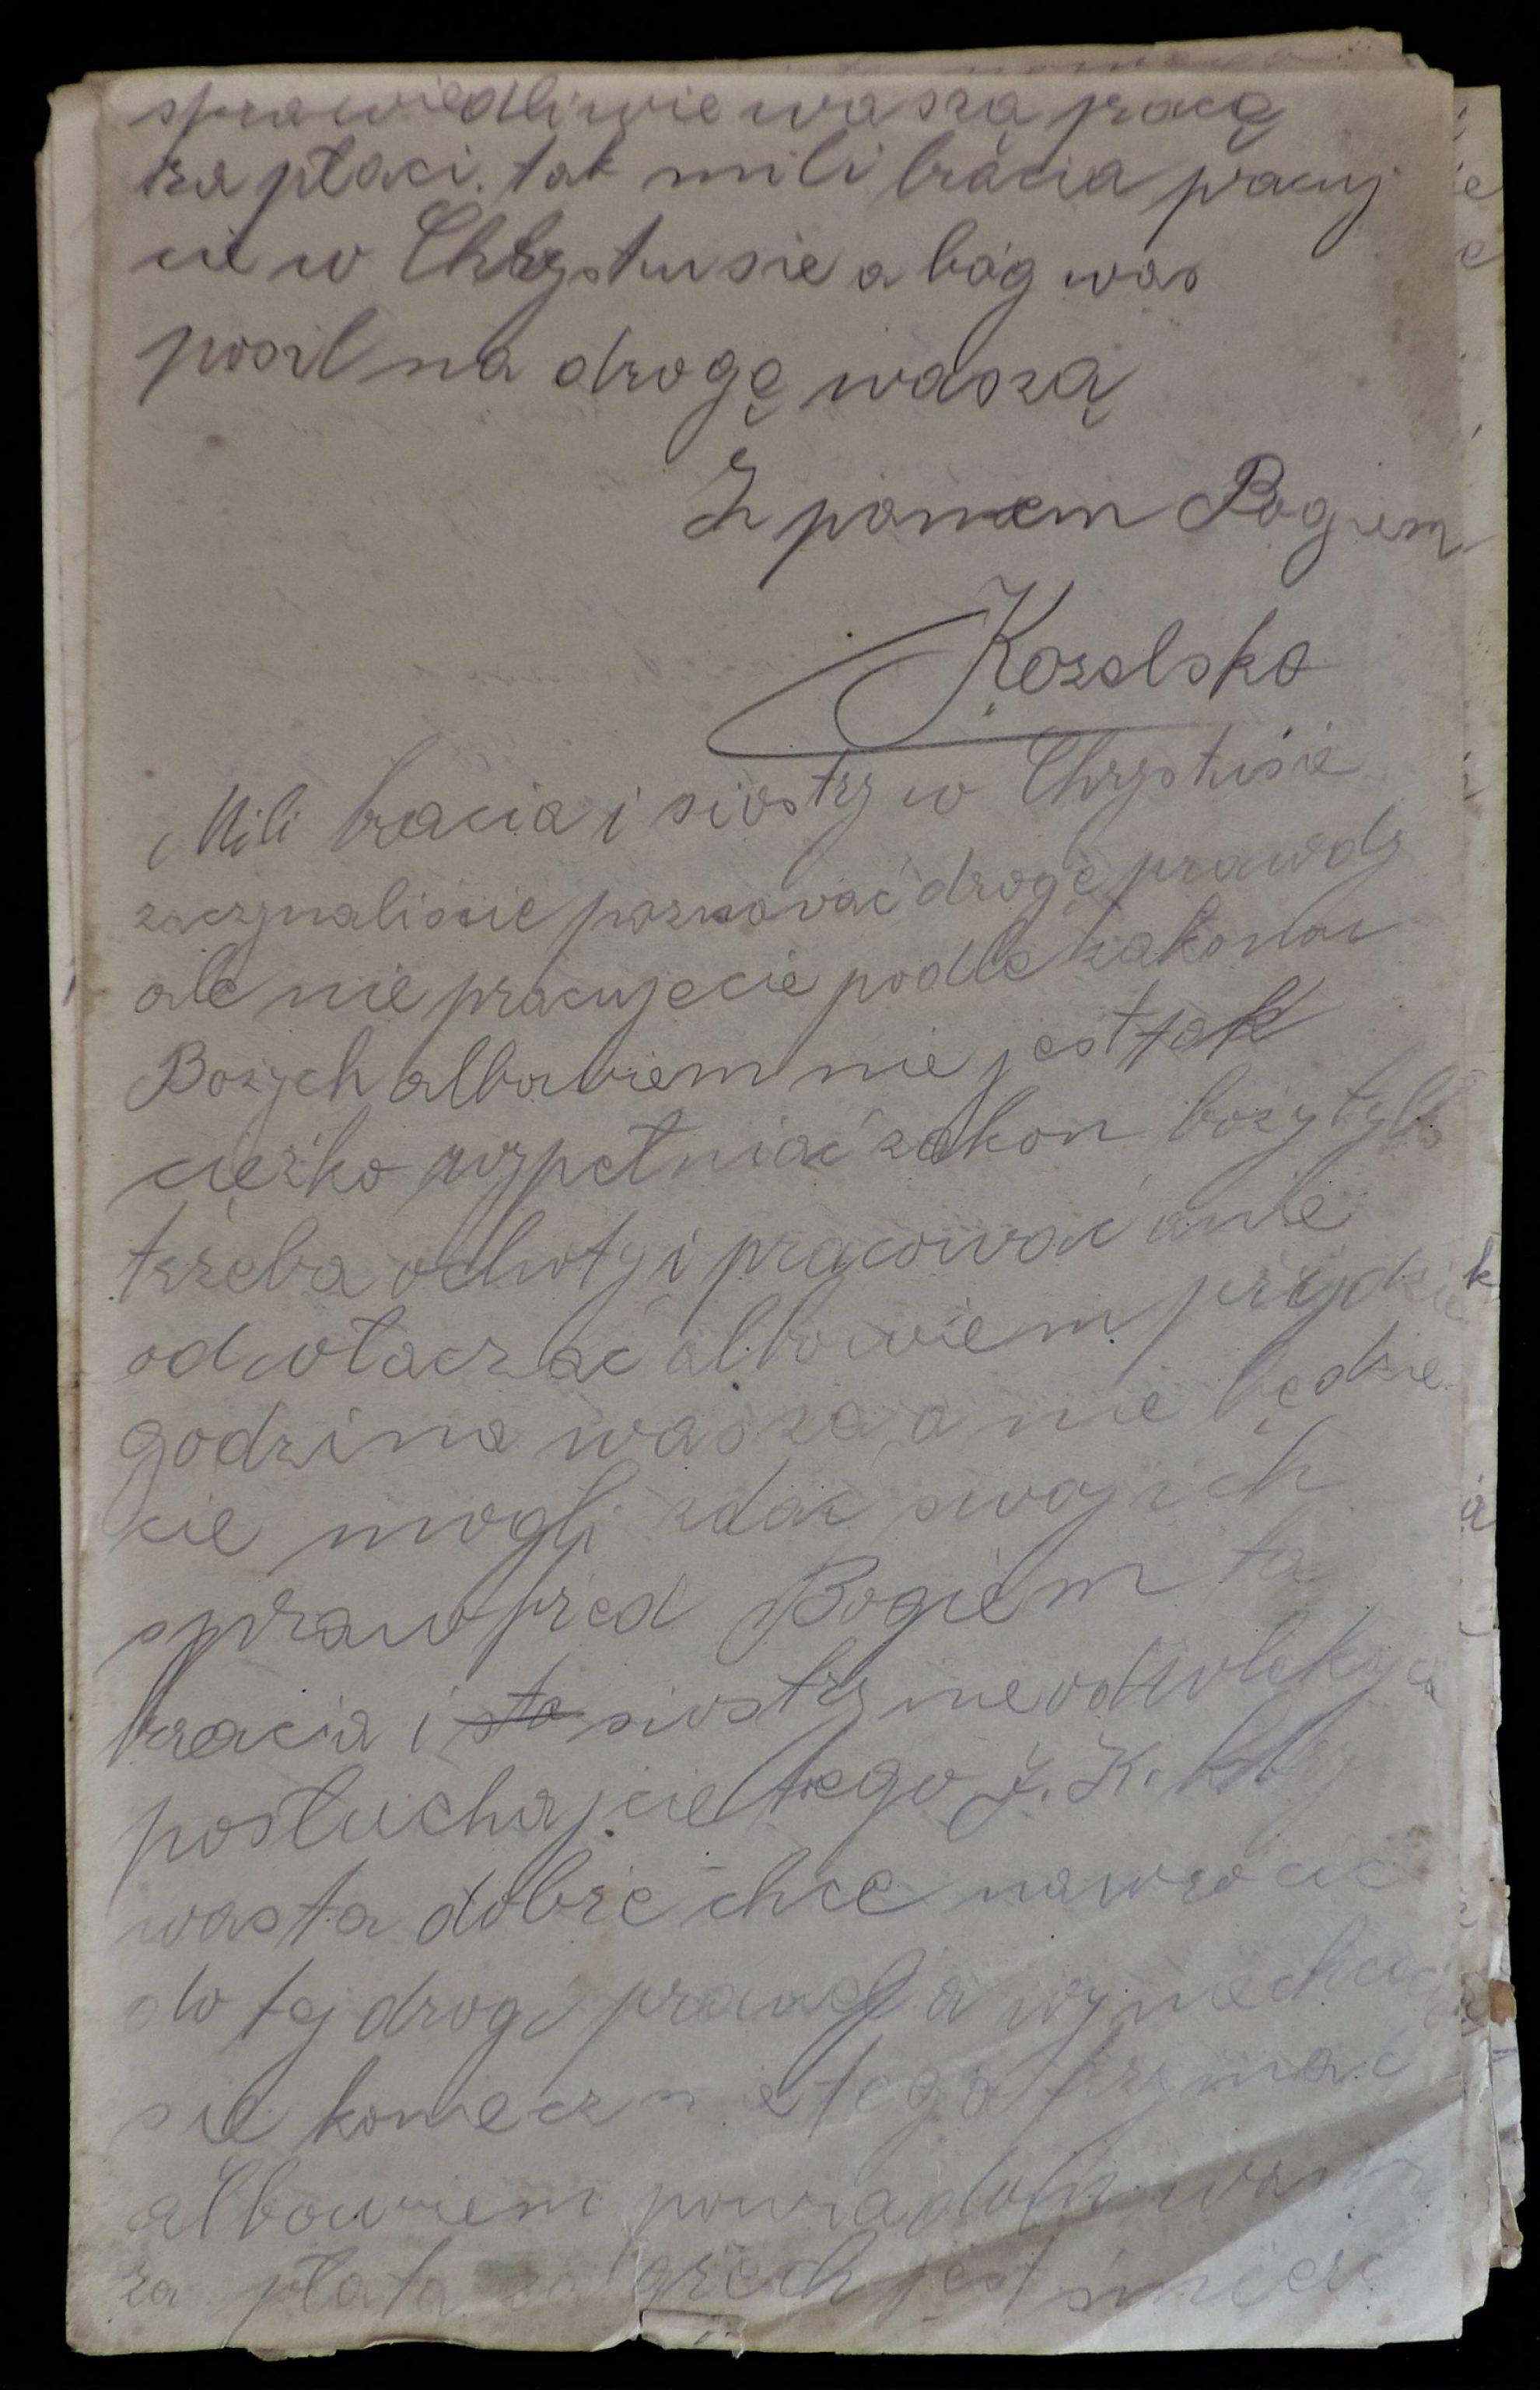 sprawiedliwie waszą pracą
za płaci. tak mili bracia pracuj
cie w Chrystusie a bóg was
posil na drogę waszą
Z panem Bogiem
Kozelsko
Mili bracia i siostry w Chrystusie
zaczynaliscie poznawać drogę prawdy
ale nie pracujecie podle zakonów
Bożych albowiem nie jest tak
ciężko wypełniać zakon boży tylko
trzeba ochoty i pracować a nie
odwłaczać albowiem przydzie
godzina wasza a nie będzie
cie mogli zdac swojich
spraw pred Bogiem ta
bracia i siostry nieodwlekajcie
posłuchajcie tego J. K. ktory
was ta dobrze chce nawrocić
do tej drogi prawdy a wy niechcecie
sie koniecznie tego trzymać
albowiem powiadam wam
za płata za grzech jest śmierć